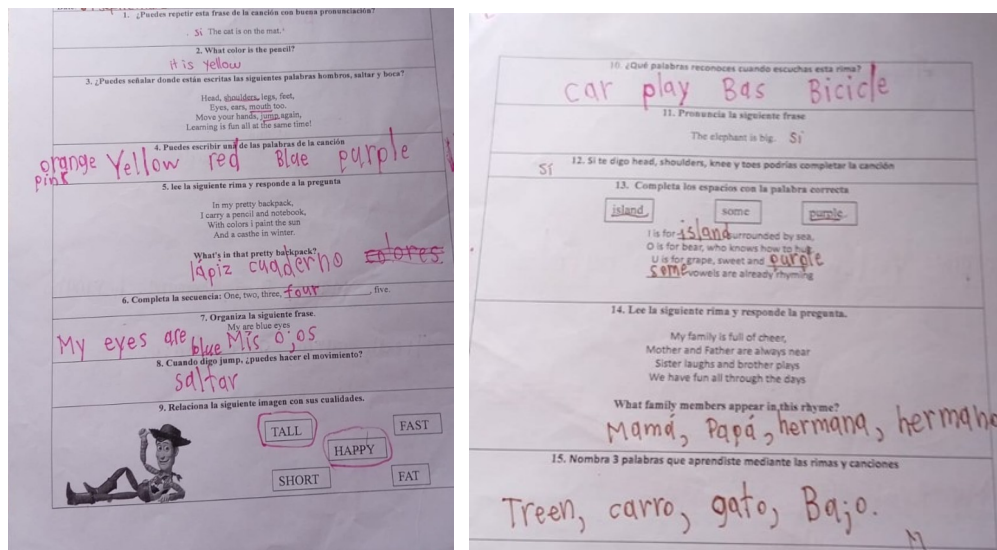 1. ¿Puedes repetir esta frase de la canción con buena pronunciación?
Si The cat is on the mat.
2. What color is the pencil?
it is yellow
3. ¿Puedes señalar donde están escritas las siguientes palabras hombros, saltar y boca?
Head, shoulders, legs, feet,
Eyes, ears, mouth too.
Move your hands, jump again,
Learning is fun all at the same time!
4. Puedes escribir una de las palabras de la canción
orange Yellow red Blae purple
pink
5. lee la siguiente rima y responde a la pregunta
In my pretty backpack,
I carry a pencil and notebook,
With colors i paint the sun
And a casthe in winter.
What's in that pretty backpack?
lápiz cuaderno colores
6. Completa la secuencia: One, two, three, four, five.
7. Organiza la siguiente frase.
My are blue eyes
My eyes are blue Mis ojos
8. Cuando digo jump, ¿puedes hacer el movimiento?
saltar
9. Relaciona la siguiente imagen con sus cualidades.
TALL FAST
HAPPY
SHORT FAT
10. ¿Qué palabras reconoces cuando escuchas esta rima?
car play Bas Bicicle
11. Pronuncia la siguiente frase
The elephant is big. Si
12. Si te digo head, shoulders, knee y toes podrías completar la canción
Sí
13. Completa los espacios con la palabra correcta
island some purple
I is for island surrounded by sea,
O is for bear, who knows how to hug
U is for grape, sweet and purple
some vowels are already rhyming
14. Lee la siguiente rima y responde la pregunta.
My family is full of cheer,
Mother and Father are always near
Sister laughs and brother plays
We have fun all through the days
What family members appear in this rhyme?
Mamá, Papá, hermana, hermano
15. Nombra 3 palabras que aprendiste mediante las rimas y canciones
Treen, carro, gato, Bajo.